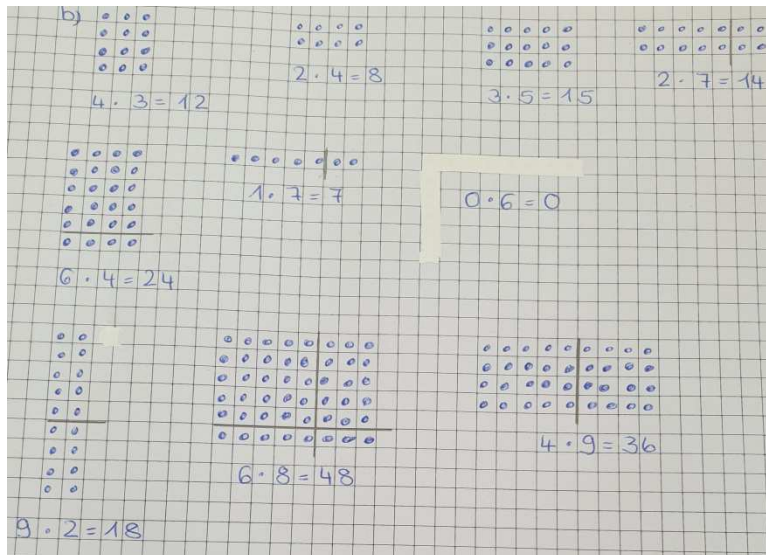 b)
4 · 3 = 12
2 · 4 = 8
3 · 5 = 15
2 · 7 = 14
6 · 4 = 24
1 · 7 = 7
0 · 6 = 0
9 · 2 = 18
6 · 8 = 48
4 · 9 = 36